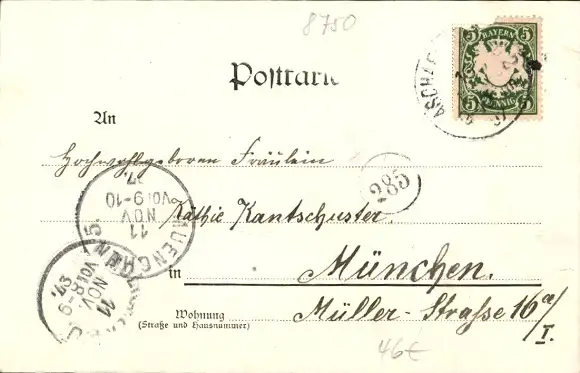 8750
5 BAYERN 5
5 PFENNIG 5
ASCHAF
Postkarte
An
Hochwohlgeboren Fräulein
285
Käthie Kantschuster.
MUENCHEN 5.
11
NOV
VOR 9-10
97.
11
NOV
VOR 8-9
97.
in München.
Wohnung
(Straße und Hausnummer)
Müller-Straße 16 a/I.
46€